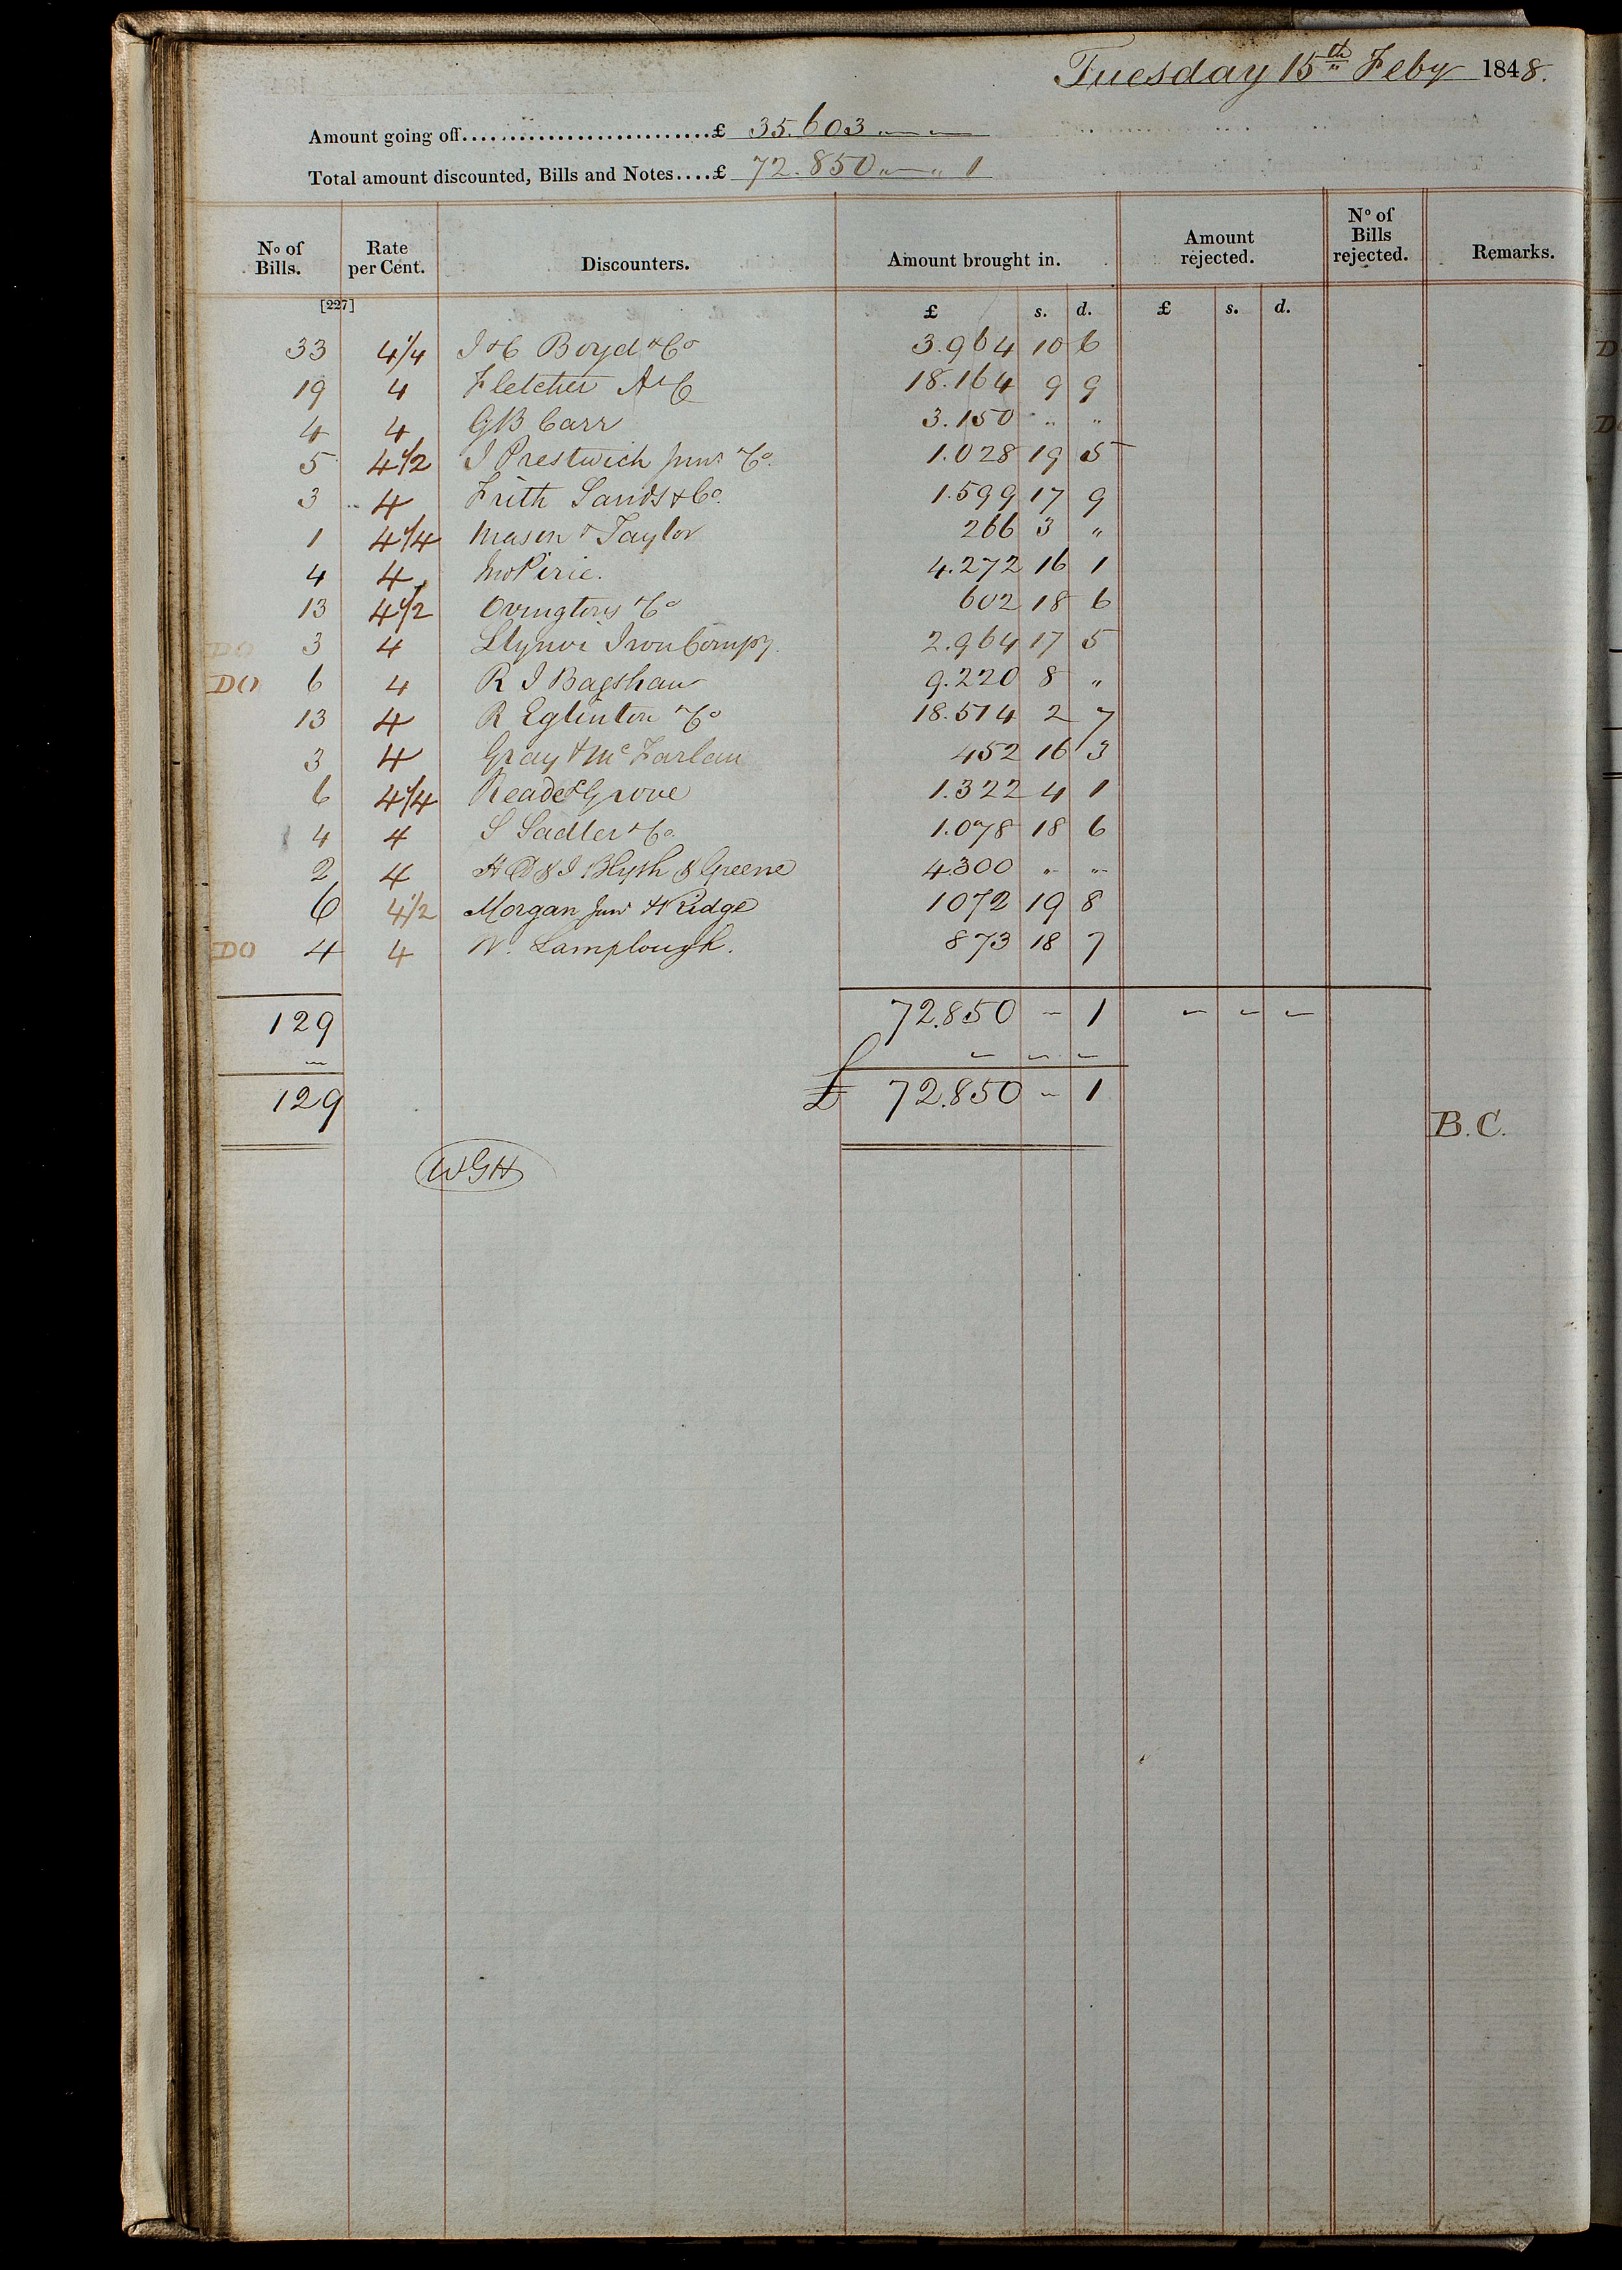 Tuesday 15th Feby 1848.
Amount going off..........................£ 35.603 " "
Total amount discounted, Bills and Notes....£ 72.850 " " 1
No of Bills. Rate per Cent. Discounters. Amount brought in. Amount rejected. No of Bills rejected. Remarks.
[227] £ s. d. £ s. d.
33 4 1/4 J & C Boyd & Co 3.964 10 6
19 4 Fletcher A & C 18.164 9 9
4 4 GB Carr 3.150 " "
5 4 1/2 J Prestwich Junr & Co. 1.028 19 5
3 4 Frith Sands & Co. 1.599 17 9
1 4 1/4 Mason & Taylor 266 3 "
4 4 Jno Pirie. 4.272 16 1
13 4 1/2 Ovingtons & Co 602 18 6
DO 3 4 Llynvi Iron Compy. 2.964 17 5
DO 6 4 R J Bagshaw 9.220 8 "
13 4 R Eglinton & Co 18.514 2 7
3 4 Gray & Mc Farlan 452 16 3
6 4 1/4 Reade & Grove 1.322 4 1
4 4 S Sadler & Co. 1.078 18 6
2 4 H D & J Blyth & Greene 4300 " "
6 4 1/2 Morgan Junr & Ridge 1072 19 8
DO 4 4 W. Lamplough. 873 18 7
129 72.850 - 1 - - -
- - - -
129 £ 72.850 - 1
B.C.
WGH